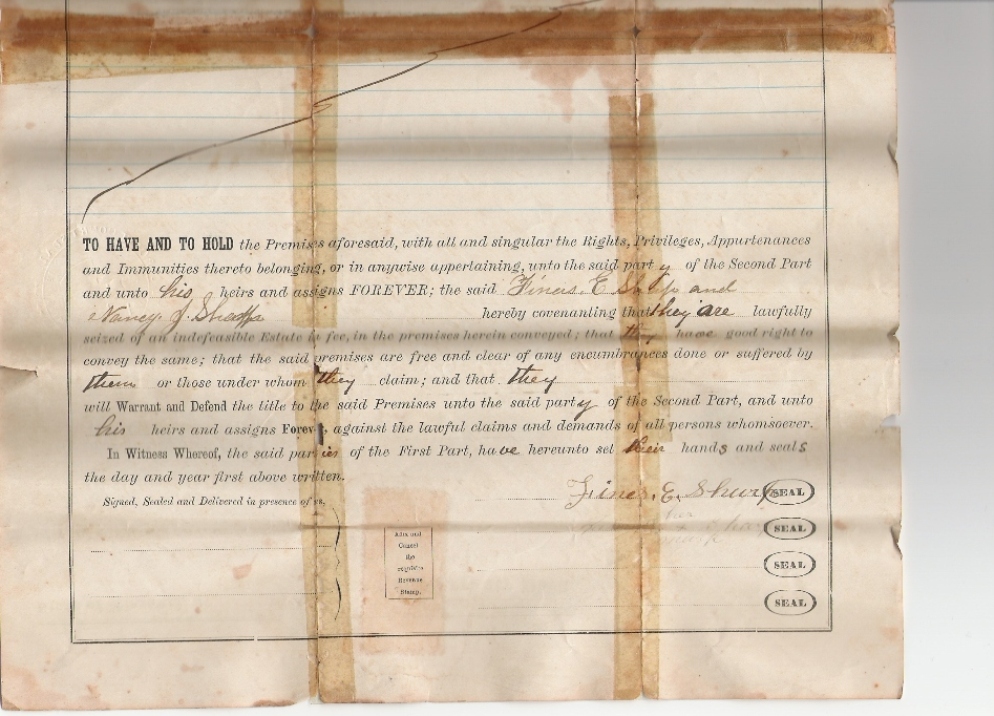 TO HAVE AND TO HOLD the Premises aforesaid, with all and singular the Rights, Privileges, Appurtenances
and Immunities thereto belonging, or in anywise appertaining, unto the said party of the Second Part
and unto his heirs and assigns FOREVER; the said E. and
Nancy J. hereby covenanting that they are lawfully
seized of an indefeasible Estate in fee, in the premises herein conveyed; that they have good right to
convey the same; that the said premises are free and clear of any encumbrances done or suffered by
them or those under whom they claim; and that they
will Warrant and Defend the title to the said Premises unto the said party of the Second Part, and unto
his heirs and assigns Forever, against the lawful claims and demands of all persons whomsoever.
In Witness Whereof, the said parties of the First Part, have hereunto set their hands and seals
the day and year first above written.
Signed, Sealed and Delivered in presence of us,
E. SEAL
her
SEAL
mark
Affix and
Cancel
the
requisite
Revenue
Stamp.
SEAL
SEAL